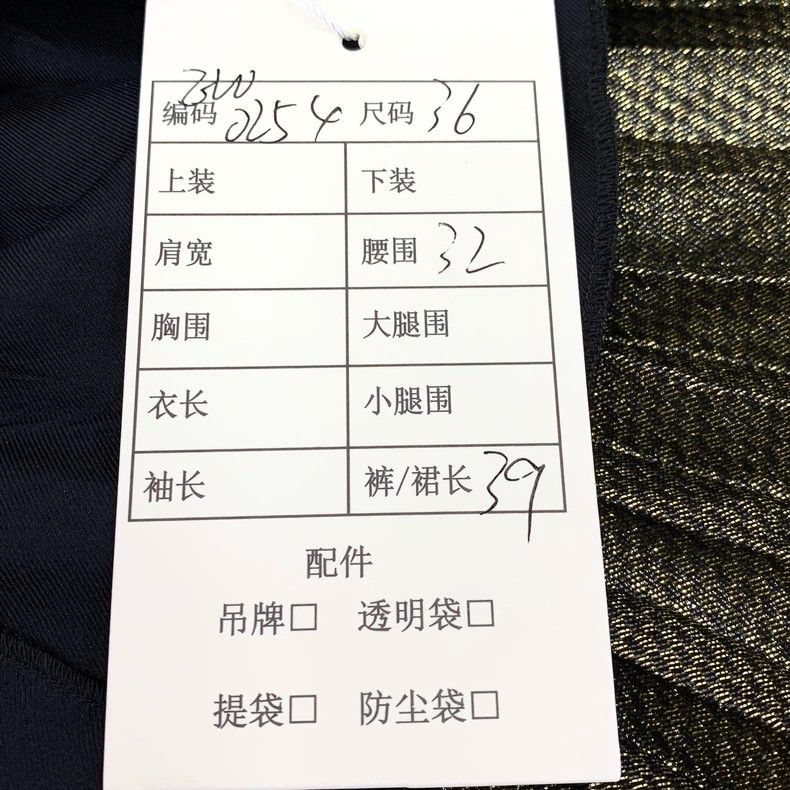 ZW
编码 0254 尺码 36
上装 下装
肩宽 腰围 32
胸围 大腿围
衣长 小腿围
袖长 裤/裙长 39
配件
吊牌□ 透明袋□
提袋□ 防尘袋□